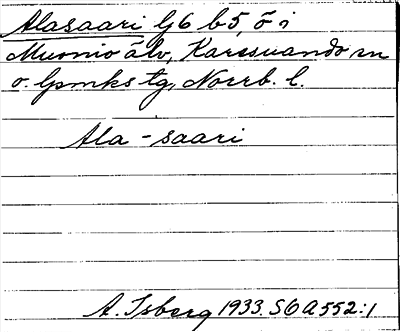 Alasaari Gj6 b5, ö i
Muonio älv, Karesuando sn
o. lpmks tg, Norrb. l.
Ala-saari
A. Isberg 1933. S6A552:1